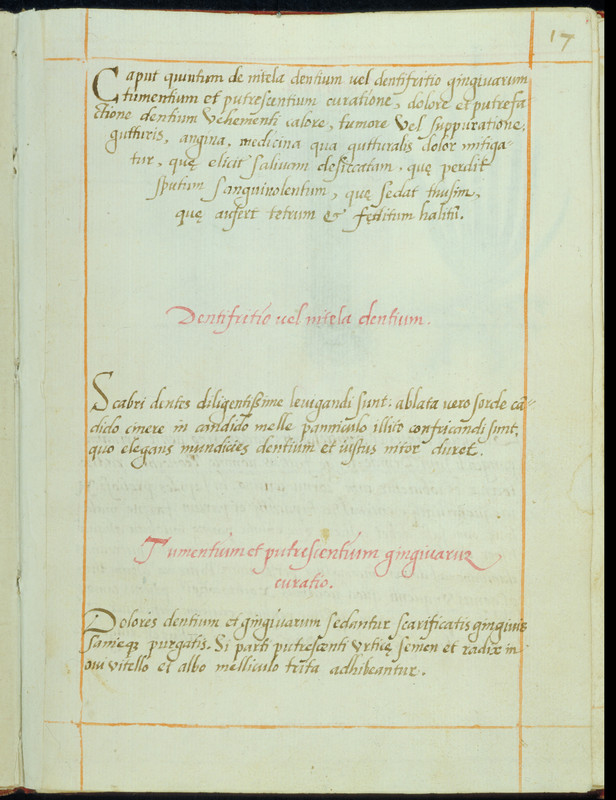 17
Caput quintum de nitela dentium vel dentifritio gingivarum
tumentium et putrescentium curatione, dolore et putrefa-
ctione dentium vehementi calore, tumore vel suppuratione,
gutturis, angina, medicina qua gutturalis dolor mitiga-
tur, quę elicit salivam desiccatam, quę perdit
sputum sanguinolentum, quę sedat tussim,
quę aufert tetrum & fętidum halitū.
Dentifritio vel nitela dentium.
Scabri dentes diligentissime levigandi sunt: ablata vero sorde cā-
dido cinere in candido melle panniculo illito confricandi sunt,
quo elegans mundicies dentium et iustus nitor duret.
Tumentium et putrescentium gingivarum
curatio.
Dolores dentium et gingivarum sedantur scarificatis gingivis
sanieq; purgatis. Si parti putrescenti Vrticę semen et radix in
oui vitello et albo melliculo trita adhibeantur.